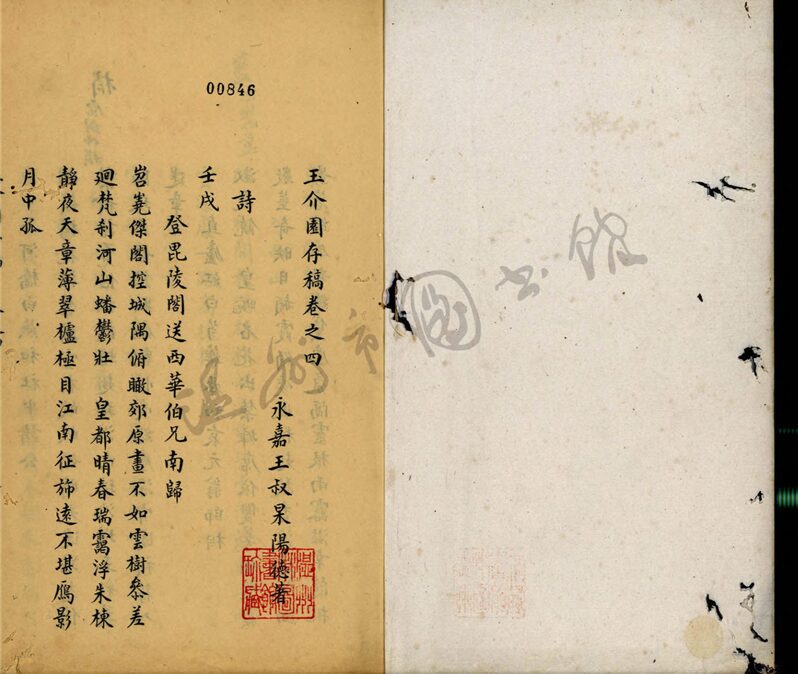 00846
玉介園存稿卷之四
永嘉王叔杲陽德著
詩
壬戌
登毘陵閣送西華伯兄南歸
岧嶤傑閣控城隅俯瞰郊原畫不如雲樹參差
廻梵刹河山蟠鬱壯 皇都晴春瑞靄浮朱棟
靜夜天章薄翠櫨極目江南征斾遠不堪鴈影
月中孤
温州市圖书馆